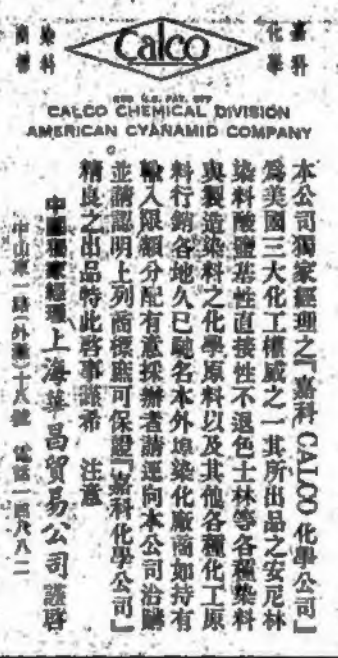 嘉科
化學
Calco
染料
商標
REG U.S. PAT. OFF
CALCO CHEMICAL DIVISION
AMERICAN CYANAMID COMPANY
本公司獨家經理之『嘉科CALCO化學公司』
為美國三大化工權威之一其所出品之安尼林
染料酸鹽基性直接性不退色士林等各種染料
與製造染料之化學原料以及其他各種化工原
料行銷各地久已馳名本外埠染化廠商如持有
輸入限額分配有意採辦者請逕向本公司洽購
並請認明上列商標庶可保證『嘉科化學公司』
精良之出品特此啓事諸希 注意
中國獨家經理上海華昌貿易公司謹啓
中山東一路(外灘)十八號 電話一四八八二